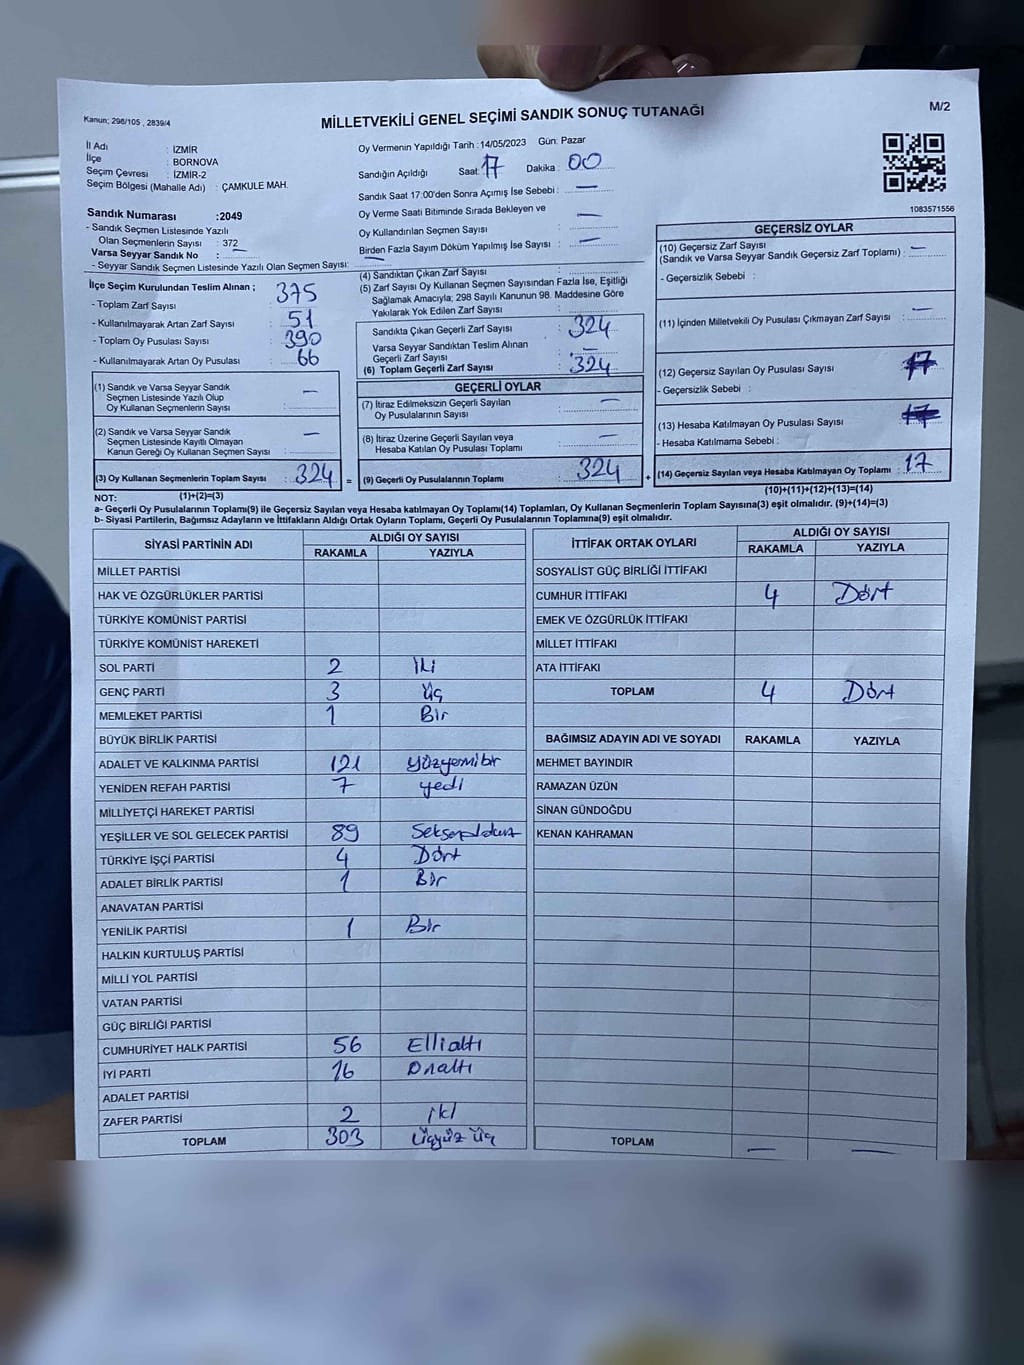 Kanun; 298/105 , 2839/4
MİLLETVEKİLİ GENEL SEÇİMİ SANDIK SONUÇ TUTANAĞI
M/2
İl Adı : İZMİR
İlçe : BORNOVA
Seçim Çevresi : İZMİR-2
Seçim Bölgesi (Mahalle Adı) : ÇAMKULE MAH.
Sandık Numarası :2049
- Sandık Seçmen Listesinde Yazılı
Olan Seçmenlerin Sayısı : 372
Varsa Seyyar Sandık No : —
- Seyyar Sandık Seçmen Listesinde Yazılı Olan Seçmen Sayısı: —
Oy Vermenin Yapıldığı Tarih :14/05/2023 Gün: Pazar
Sandığın Açıldığı Saat: 17 Dakika : 00
Sandık Saat 17:00'den Sonra Açımış İse Sebebi : —
Oy Verme Saati Bitiminde Sırada Bekleyen ve
Oy Kullandırılan Seçmen Sayısı : —
Birden Fazla Sayım Döküm Yapılmış İse Sayısı : —
1083571556
İlçe Seçim Kurulundan Teslim Alınan ;
- Toplam Zarf Sayısı : 375
- Kullanılmayarak Artan Zarf Sayısı : 51
- Toplam Oy Pusulası Sayısı : 390
- Kullanılmayarak Artan Oy Pusulası : 66
(1) Sandık ve Varsa Seyyar Sandık
Seçmen Listesinde Yazılı Olup
Oy Kullanan Seçmenlerin Sayısı : —
(2) Sandık ve Varsa Seyyar Sandık
Seçmen Listesinde Kayıtlı Olmayan
Kanun Gereği Oy Kullanan Seçmen Sayısı : —
(3) Oy Kullanan Seçmenlerin Toplam Sayısı : 324 =
(1)+(2)=(3)
(4) Sandıktan Çıkan Zarf Sayısı :
(5) Zarf Sayısı Oy Kullanan Seçmen Sayısından Fazla İse, Eşitliği
Sağlamak Amacıyla; 298 Sayılı Kanunun 98. Maddesine Göre
Yakılarak Yok Edilen Zarf Sayısı :
Sandıkta Çıkan Geçerli Zarf Sayısı : 324
Varsa Seyyar Sandıktan Teslim Alınan
Geçerli Zarf Sayısı : —
(6) Toplam Geçerli Zarf Sayısı : 324
GEÇERLİ OYLAR
(7) İtiraz Edilmeksizin Geçerli Sayılan
Oy Pusulalarının Sayısı : —
(8) İtiraz Üzerine Geçerli Sayılan veya
Hesaba Katılan Oy Pusulası Toplamı : —
(9) Geçerli Oy Pusulalarının Toplamı : 324 +
GEÇERSİZ OYLAR
(10) Geçersiz Zarf Sayısı
(Sandık ve Varsa Seyyar Sandık Geçersiz Zarf Toplamı) : —
- Geçersizlik Sebebi :
(11) İçinden Milletvekili Oy Pusulası Çıkmayan Zarf Sayısı : —
(12) Geçersiz Sayılan Oy Pusulası Sayısı : 17
- Geçersizlik Sebebi :
(13) Hesaba Katılmayan Oy Pusulası Sayısı : 17
- Hesaba Katılmama Sebebi :
(14) Geçersiz Sayılan veya Hesaba Katılmayan Oy Toplamı : 17
(10)+(11)+(12)+(13)=(14)
NOT:
a- Geçerli Oy Pusulalarının Toplamı(9) ile Geçersiz Sayılan veya Hesaba katılmayan Oy Toplamı(14) Toplamları, Oy Kullanan Seçmenlerin Toplam Sayısına(3) eşit olmalıdır. (9)+(14)=(3)
b- Siyasi Partilerin, Bağımsız Adayların ve İttifakların Aldığı Ortak Oyların Toplamı, Geçerli Oy Pusulalarının Toplamına(9) eşit olmalıdır.
SİYASİ PARTİNİN ADI ALDIĞI OY SAYISI
RAKAMLA YAZIYLA
MİLLET PARTİSİ
HAK VE ÖZGÜRLÜKLER PARTİSİ
TÜRKİYE KOMÜNİST PARTİSİ
TÜRKİYE KOMÜNİST HAREKETİ
SOL PARTİ 2 iki
GENÇ PARTİ 3 üç
MEMLEKET PARTİSİ 1 Bir
BÜYÜK BİRLİK PARTİSİ
ADALET VE KALKINMA PARTİSİ 121 yüzyemibir
YENİDEN REFAH PARTİSİ 7 yedi
MİLLİYETÇİ HAREKET PARTİSİ
YEŞİLLER VE SOL GELECEK PARTİSİ 89
TÜRKİYE İŞÇİ PARTİSİ 4 Dört
ADALET BİRLİK PARTİSİ 1 Bir
ANAVATAN PARTİSİ
YENİLİK PARTİSİ 1 Bir
HALKIN KURTULUŞ PARTİSİ
MİLLİ YOL PARTİSİ
VATAN PARTİSİ
GÜÇ BİRLİĞİ PARTİSİ
CUMHURİYET HALK PARTİSİ 56 Ellialtı
İYİ PARTİ 16 Onaltı
ADALET PARTİSİ
ZAFER PARTİSİ 2 iki
TOPLAM 303 üçyüz üç
İTTİFAK ORTAK OYLARI ALDIĞI OY SAYISI
RAKAMLA YAZIYLA
SOSYALİST GÜÇ BİRLİĞİ İTTİFAKI
CUMHUR İTTİFAKI 4 Dört
EMEK VE ÖZGÜRLÜK İTTİFAKI
MİLLET İTTİFAKI
ATA İTTİFAKI
TOPLAM 4 Dört
BAĞIMSIZ ADAYIN ADI VE SOYADI RAKAMLA YAZIYLA
MEHMET BAYINDIR
RAMAZAN ÜZÜN
SİNAN GÜNDOĞDU
KENAN KAHRAMAN
TOPLAM — —